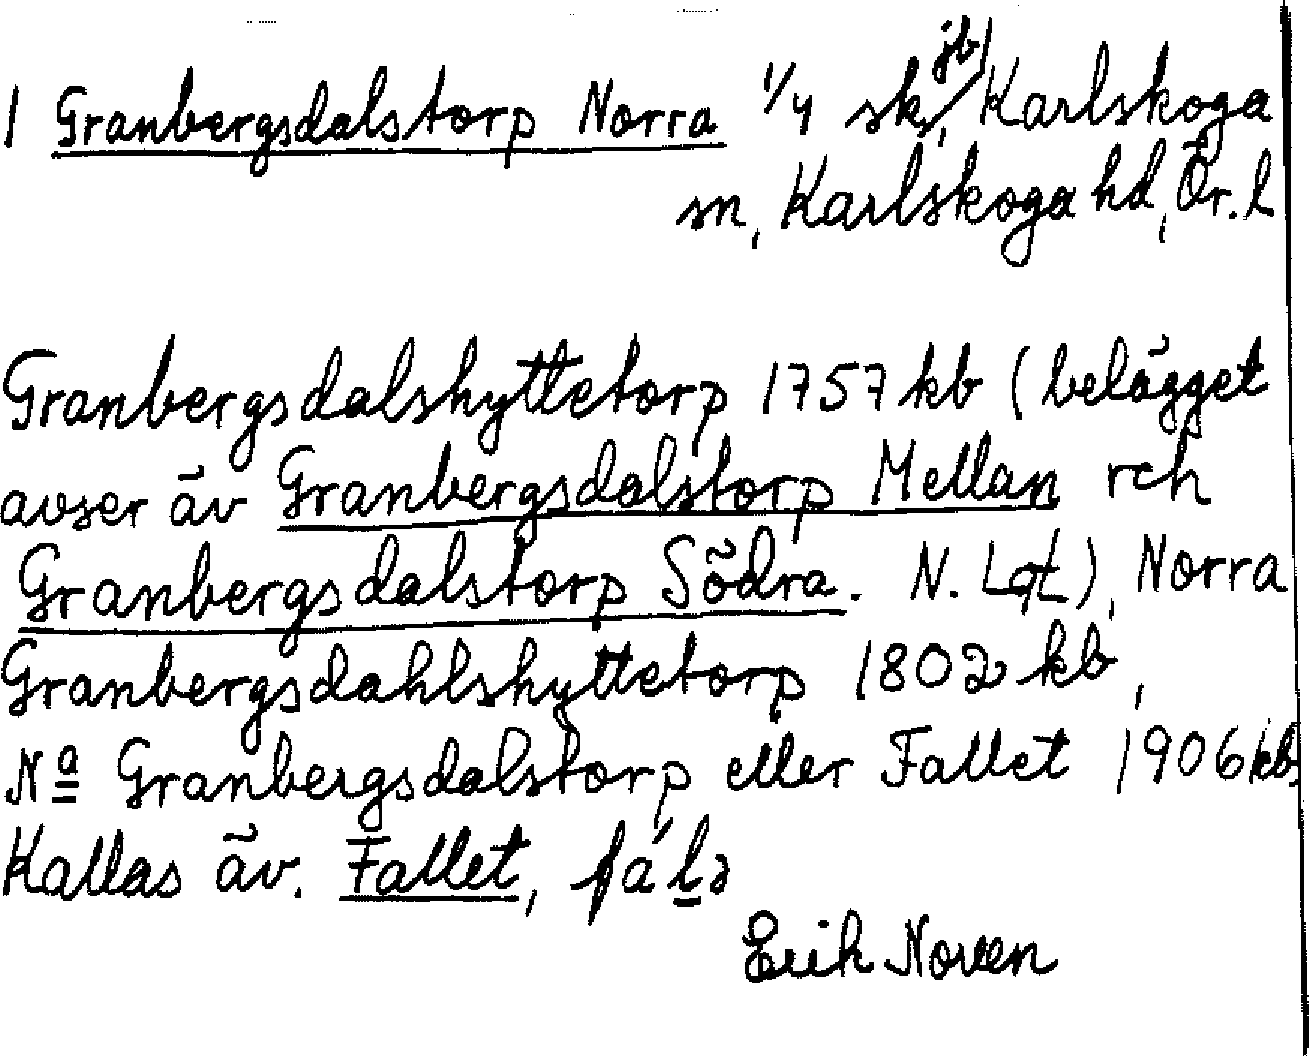 1 Granbergsdalstorp Norra 1/4 sk, jb/ Karlskoga
sn, Karlskoga hd, Ör. l
Granbergsdalshyttetorp 1757 kb (belägget
avser äv Granbergsdalstorp Mellan och
Granbergsdalstorp Södra. N. Lgt), Norra
Granbergsdahlshyttetorp 1802 kb,
Nª Granbergsdalstorp eller Fallet 1906 kb
Kallas äv. Fallet,
Erik Noreen